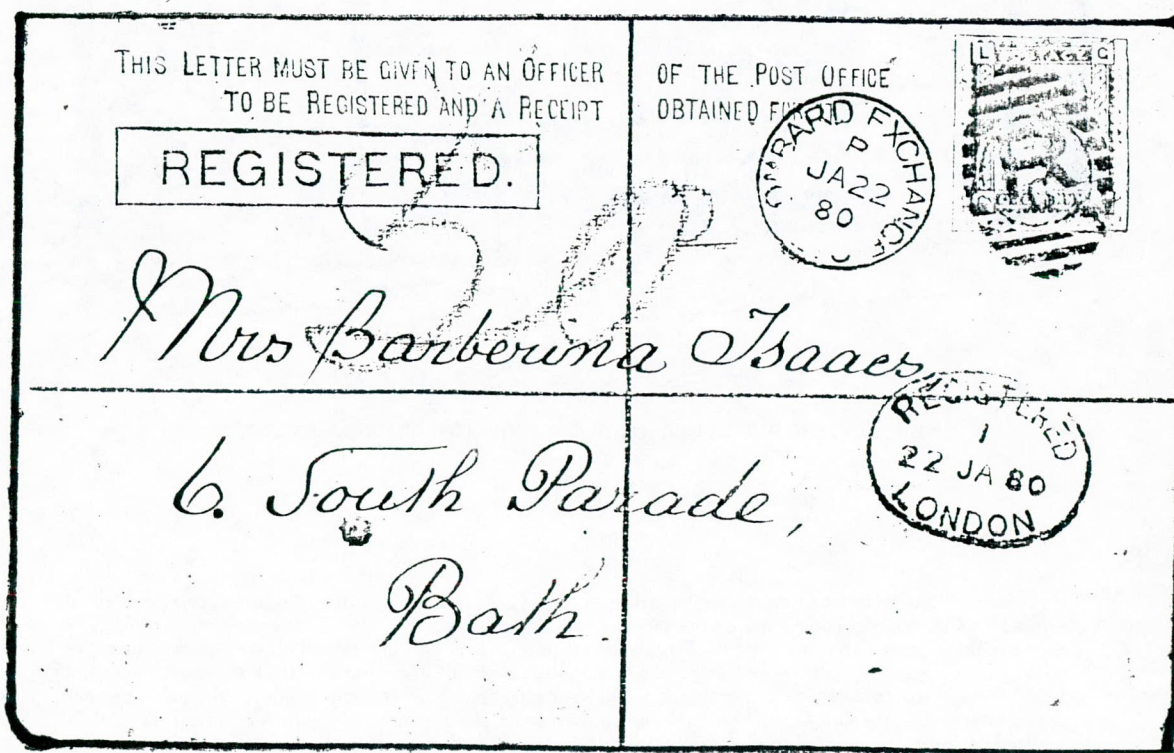 THIS LETTER MUST BE GIVEN TO AN OFFICER OF THE POST OFFICE
TO BE REGISTERED AND A RECEIPT OBTAINED FOR IT
REGISTERED.
LOMBARD EXCHANGE
P
JA 22
80
L G
Mrs Barberina Isaacs,
REGISTERED
1
22 JA 80
LONDON
6. South Parade,
Bath.